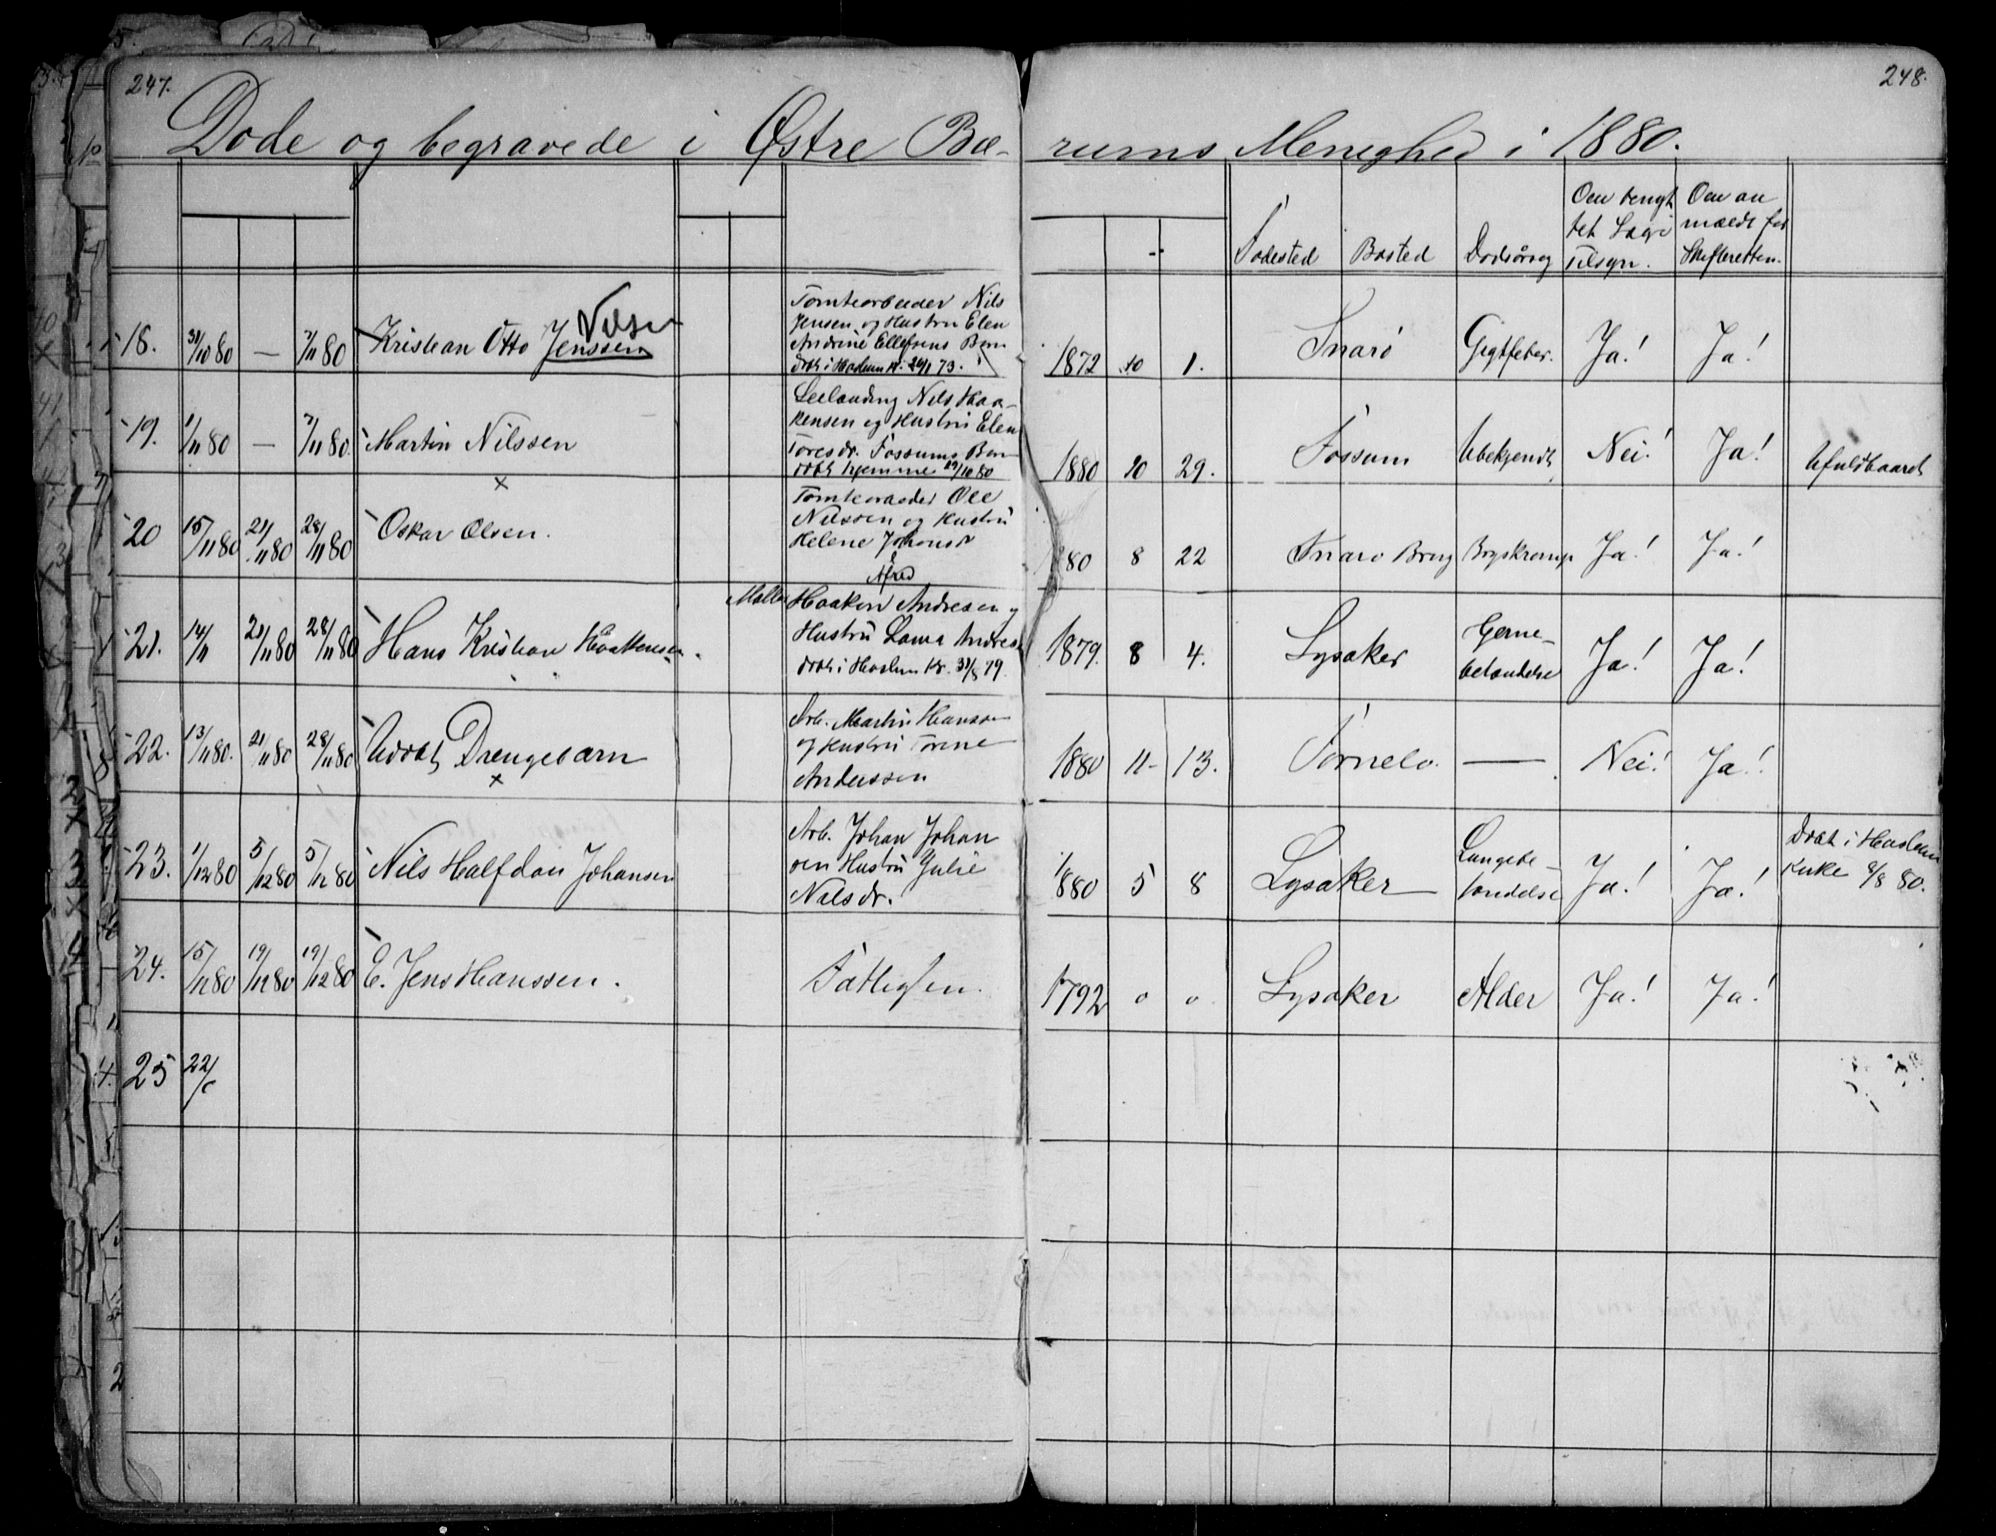 247.
248.
Døde og begravede i Østre Bæ-
rums Menighed i 1880.
Fødested Bosted Dødsårsag
Om benyt
tet Læge
Tilsyn.
Om an
meldt for
Skifteretten.
18. 31/10 80 — 7/11 80 Kristian Otto Jenssen
Nilsen
Tomtearbeider Nils
Jensen og Hustru Elen
Andrine Ellefsens Barn
døbt i Haslum K. 26/1 73.
1872 10 1. Snarø Gigtfeber. Ja! Ja!
19. 1/11 80 — 7/11 80. Martin Nilssen
Leilænding Nils Haa-
kensen og Hustru Elen
Toresdr. Fossums Barn
døbt hjemme 29/10 80
1880 10 29. Fossum Ubekjendt Nei! Ja! Ufuldbaaret
20 15/11 80 21/11 80 28/11 80 Oskar Olsen.
Ole
Nilssen og Hustru
Helene Johansdr
1880 8 22 Snarø Brug Brystkrampe Ja! Ja!
21. 14/11 21/11 80 28/11 80 Hans Kristian Haakensen.
Møller Haakon Andresen og
Hustru Laura Andres
døbt i Haslum K. 31/8 79.
1879. 8 4. Lysaker
Ja! Ja!
22. 13/11 80. 21/11 80 28/11 80 Udøbt Drengebarn
Arb. Martin Hansen
og Hustru Torine
Anderssen
1880 11- 13. — Nei! Ja!
23. 1/12 80 5/12 80 5/12 80 Nils Halfdan Johansen
Arb. Johan Johan
sen Hustru Julie
Nilsdr.
1880 5 8 Lysaker
Lungebe-
tændelse Ja! Ja!
Døbt i Haslum
Kirke 8/8 80.
24. 15/12 80 19/12 80 19/12 80 E. Jens Hanssen.
Fattiglem.
1792 0 0 Lysaker Alder Ja! Ja!
25 22/